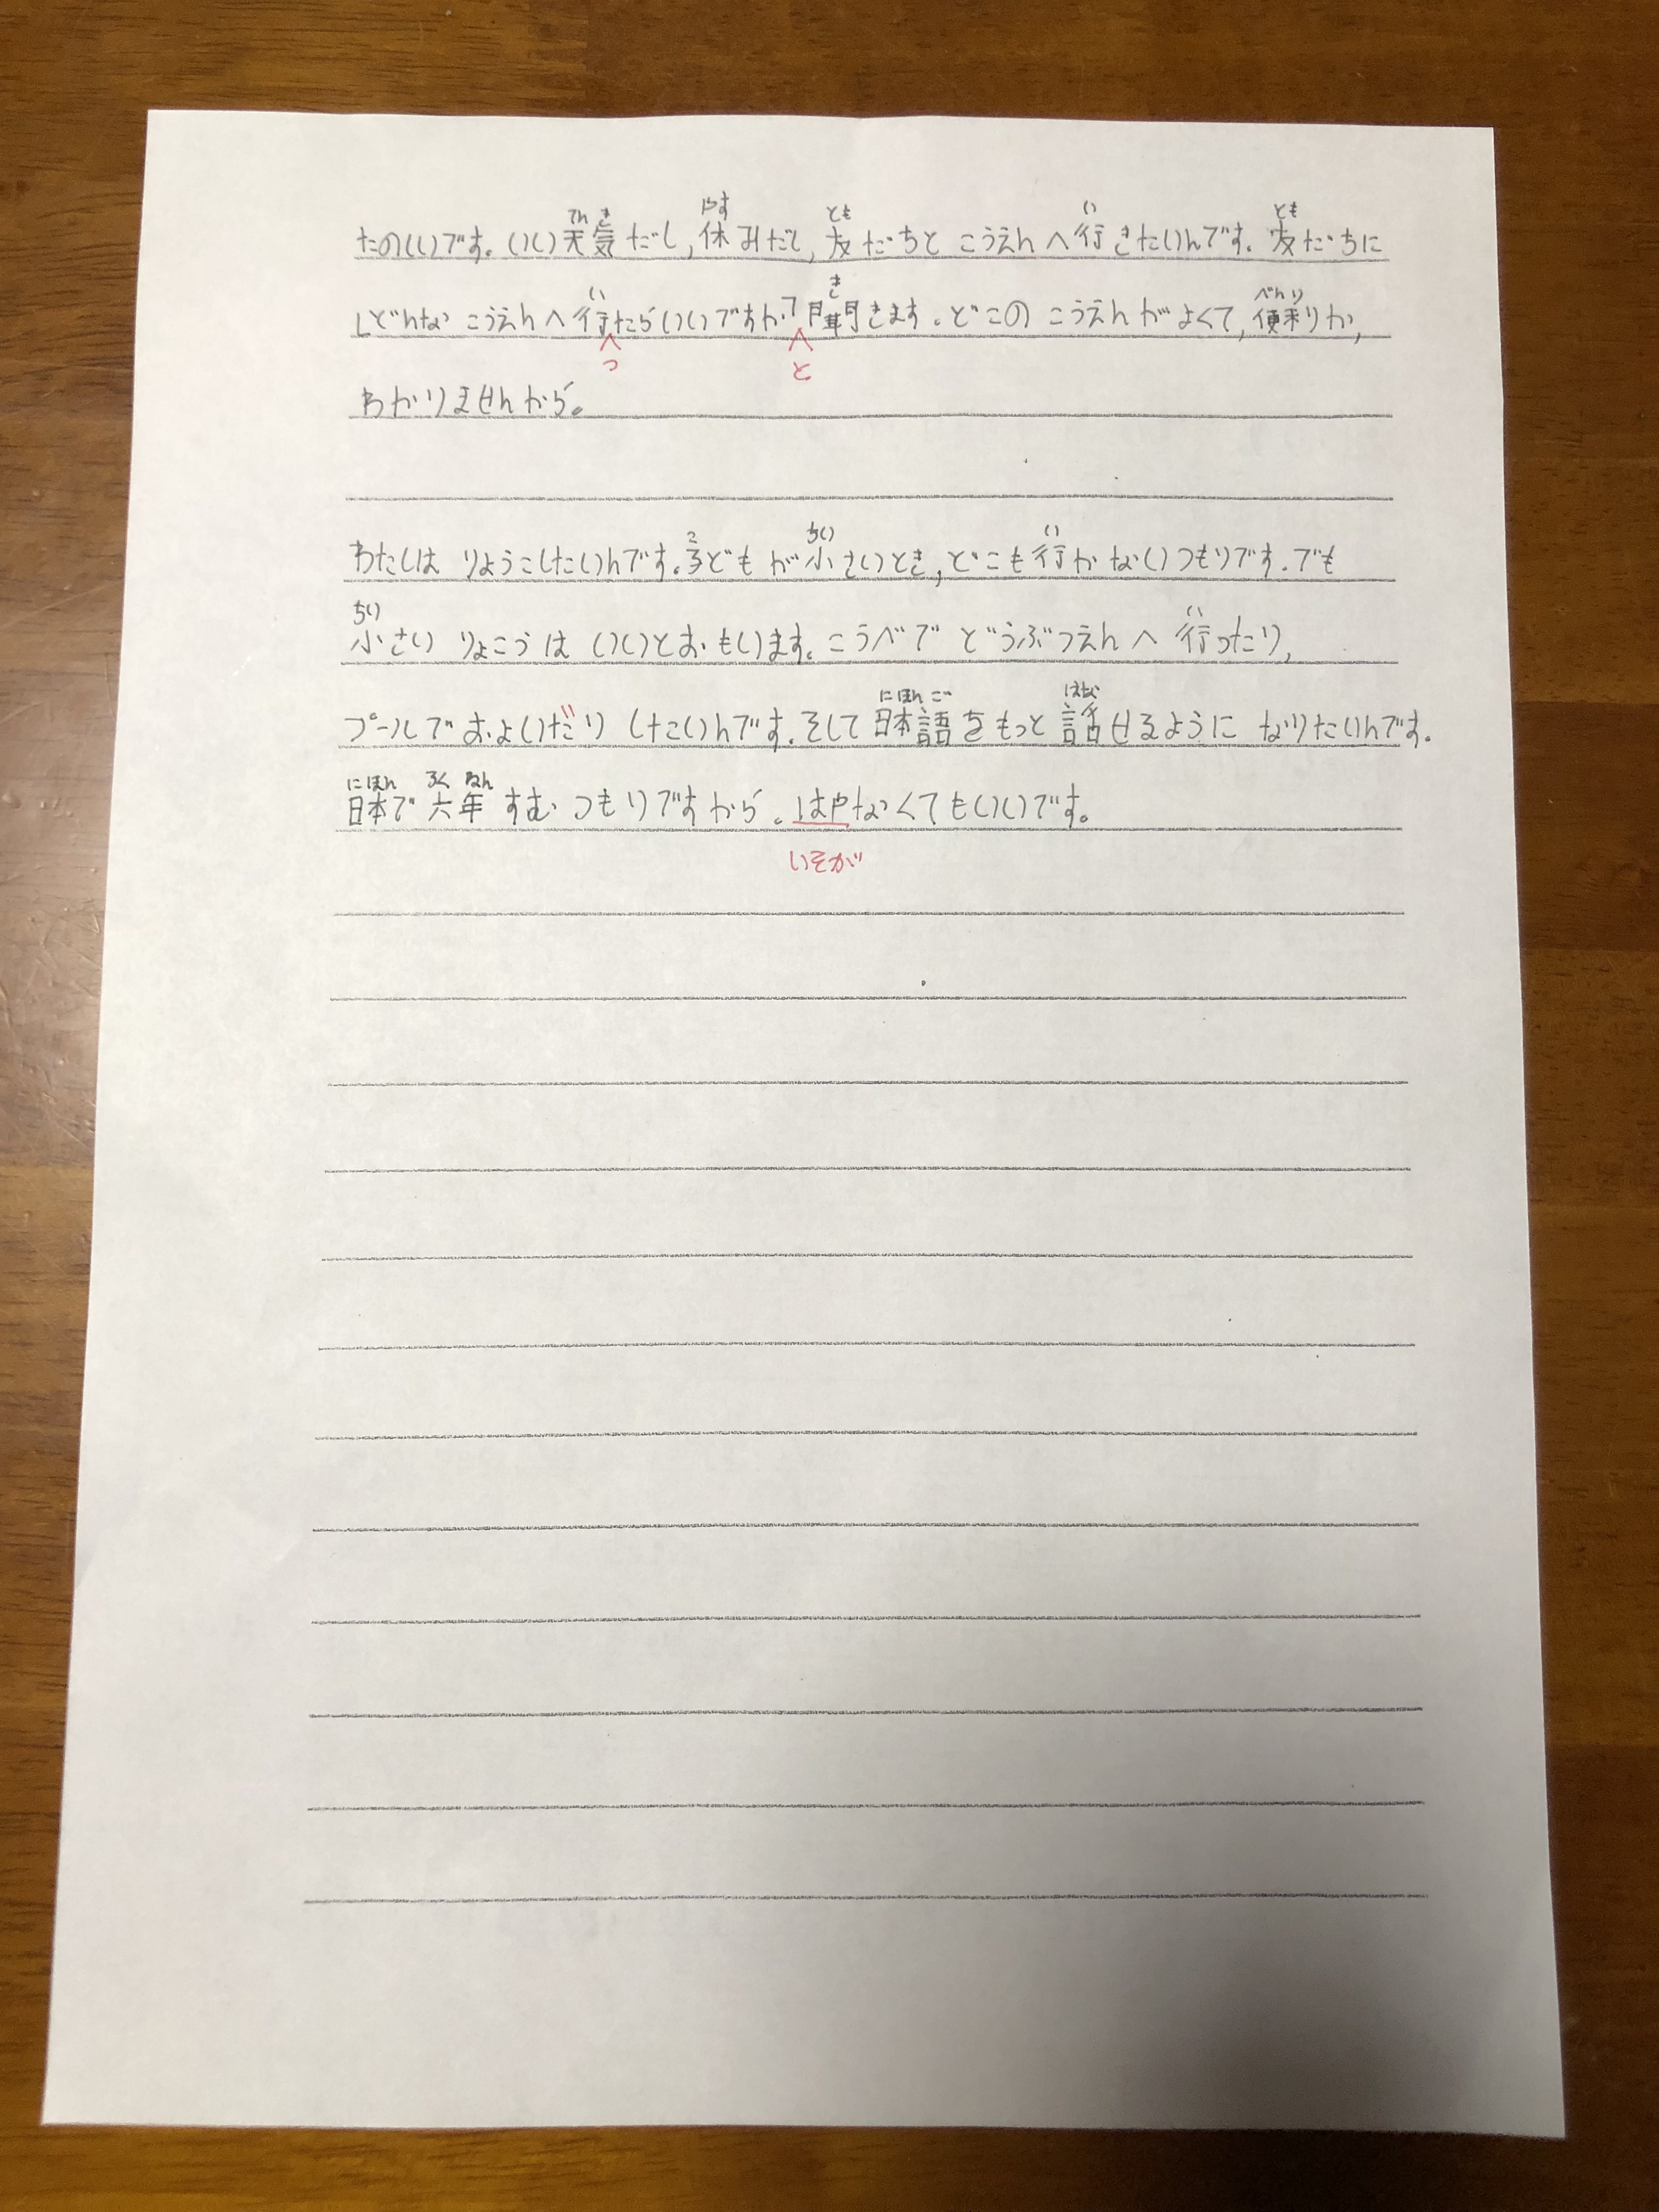 てん き やす とも い とも
たのしいです。いい天気だし,休みだし,友だちと こうえんへ行きたいんです。友だちに
い き べんり
「どんな こうえんへ行たらいいですか?」聞きます。どこの こうえんがよくて,便利か,
つ と
わかりませんから。
こ ちい い
わたしは りょうこしたいんです。子どもが小さいとき,どこも行かないつもりです。でも
ちい い
小さい りょこうは いいとおもいます。こうべで どうぶつえんへ 行ったり,
にほん ご はな
プールでおよいだり したいんです。そして日本語をもっと話せるように なりたいんです。
にほん ろく ねん
日本で六年すむ つもりですから。はやなくてもいいです。
いそが